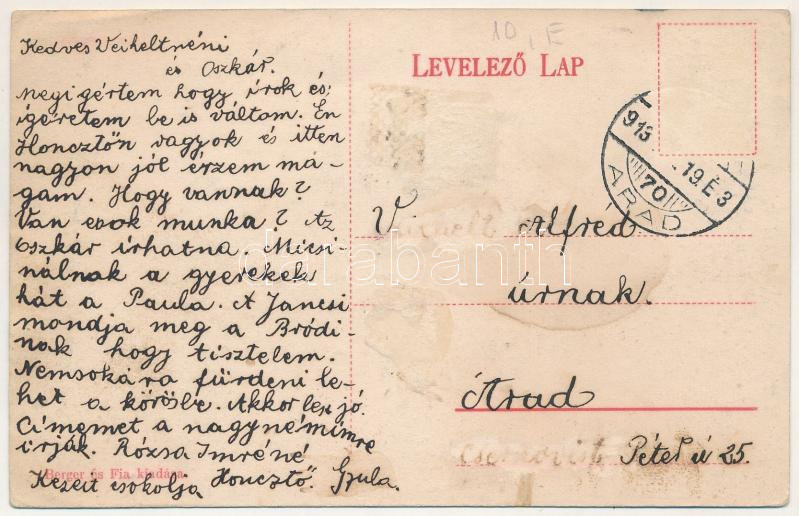 10, E
LEVELEZŐ LAP
Kedves Veiheltnéni
és Oszkár.
Megigértem hogy írok és
igéretem be is váltom. Én
Honcztőn vagyok és itten
nagyon jól érzem ma-
gam. Hogy vannak?
Van e sok munka? Az
Oszkár írhatna. Micsi-
nálnak a gyerekek
hát a Paula. A Jancsi
mondja meg a Bródi-
nak hogy tisztelem.
Nemsokára fürdeni le-
het a körösbe. Akkor lesz jó.
Címemet a nagynémimre
írják. Rózsa Imréné
Kezeit csokolja Honcztő. Gyula.
Berger és Fia kiadása
913 19.É3
70
ARAD
V. Alfred
úrnak.
Arad
Péter ú 25.
darabanth